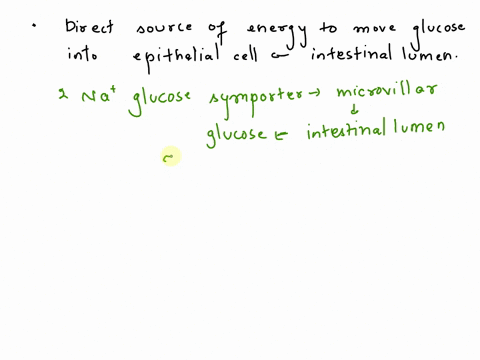 • Direct source of energy to move glucose
into epithelial cell ← intestinal lumen.
2 Na⁺ glucose symporter → microvillar
↓
glucose ← intestinal lumen